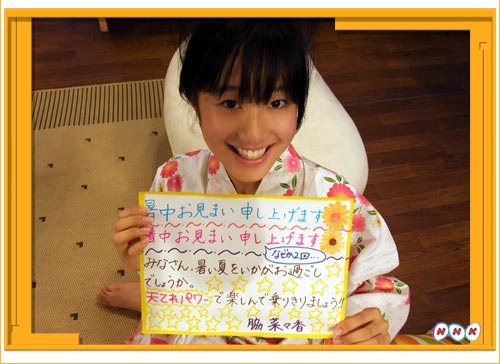 暑中お見まい申し上げます
暑中お見まい申し上げます
なぜか2回…
みなさん、暑い夏をいかがお過ごし
でしょうか。
天てれパワーで楽しんで乗りきりましょう!!
脇 菜々香
NHK